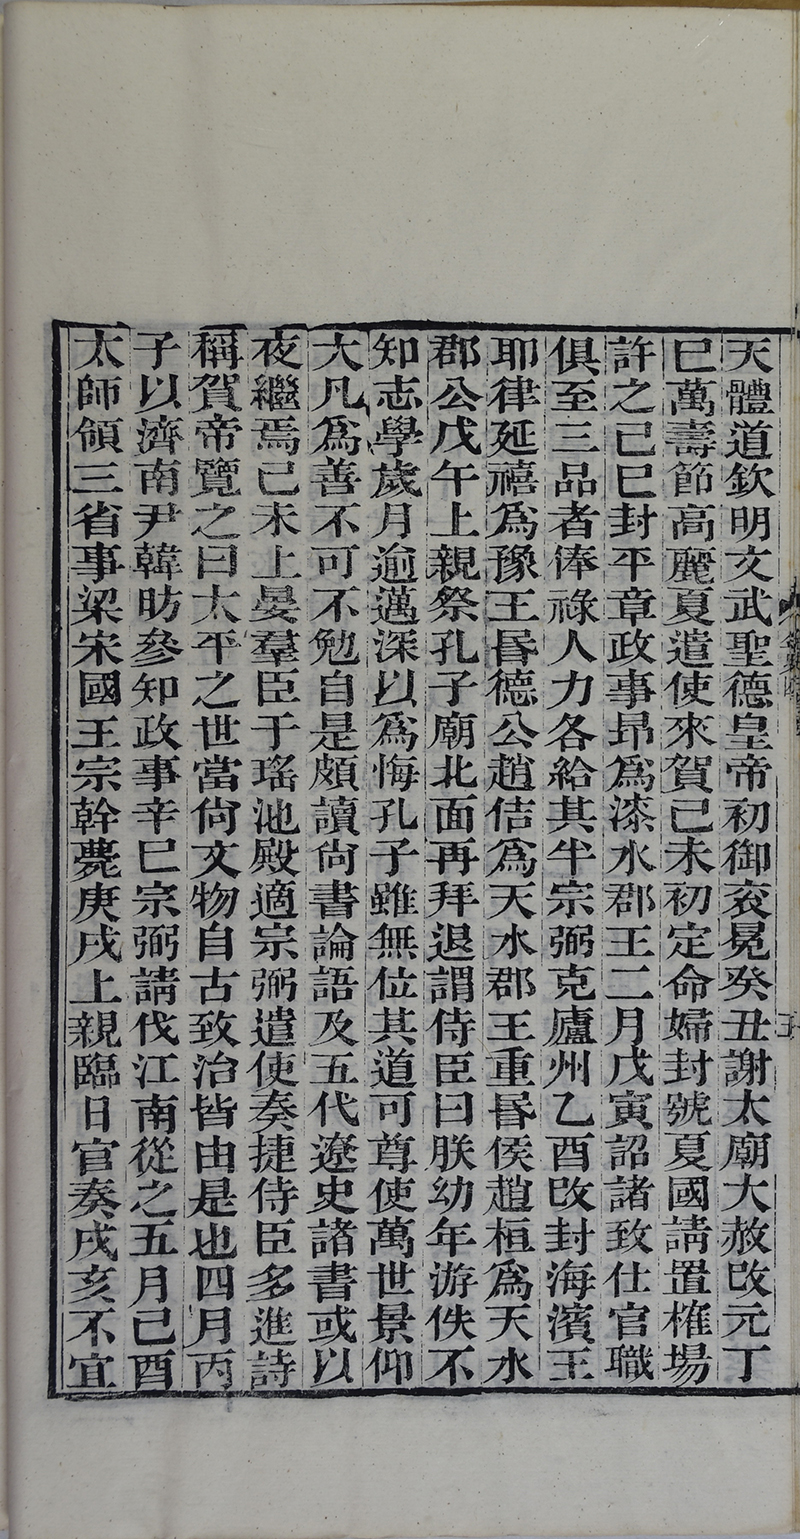 天體道欽明文武聖德皇帝初御衮冕癸丑謝太廟大赦改元丁
巳萬壽節高麗夏遣使來賀己未初定命婦封號夏國請置榷場
許之己巳封平章政事昻爲漆水郡王二月戊寅詔諸致仕官職
俱至三品者俸祿人力各給其半宗弼克廬州乙酉改封海濱王
耶律延禧爲豫王昬德公趙佶爲天水郡王重昬侯趙桓爲天水
郡公戊午上親祭孔子廟北面再拜退謂侍臣曰朕幼年游佚不
知志學歲月逾邁深以爲悔孔子雖無位其道可尊使萬世景仰
大凡爲善不可不勉自是頗讀尙書論語及五代遼史諸書或以
夜繼焉己未上晏羣臣于瑤池殿適宗弼遣使奏捷侍臣多進詩
稱賀帝覽之曰太平之世當尙文物自古致治皆由是也四月丙
子以濟南尹韓昉參知政事辛巳宗弼請伐江南從之五月己酉
太師領三省事梁宋國王宗幹薨庚戌上親臨日官奏戌亥不宜